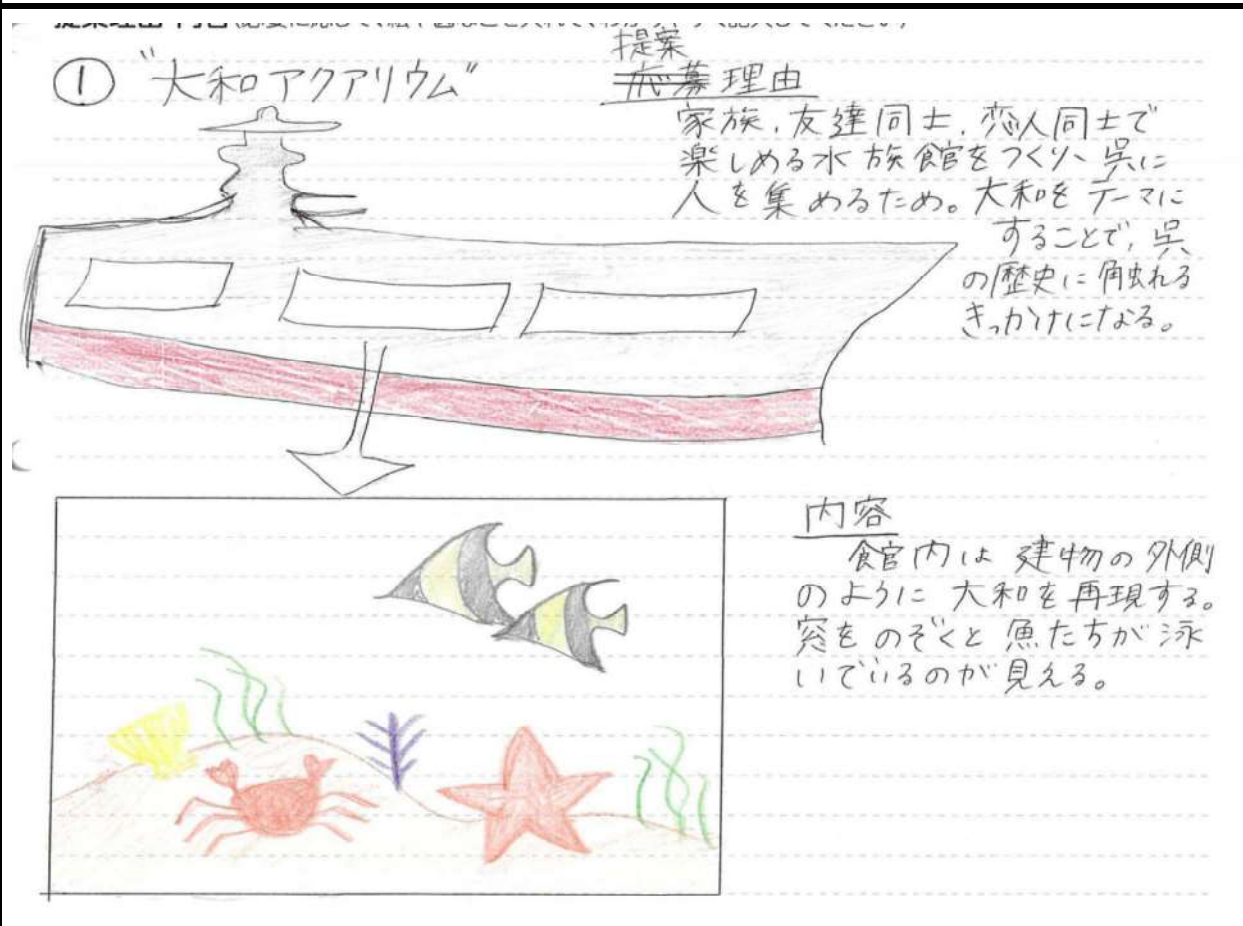 ① "大和アクアリウム"
提案
応募理由
家族、友達同士、恋人同士で
楽しめる水族館をつくり、呉に
人を集めるため。大和をテーマに
することで、呉
の歴史に触れる
きっかけになる。
内容
館内は建物の外側
のように大和を再現する。
窓をのぞくと魚たちが泳
いでいるのが見える。